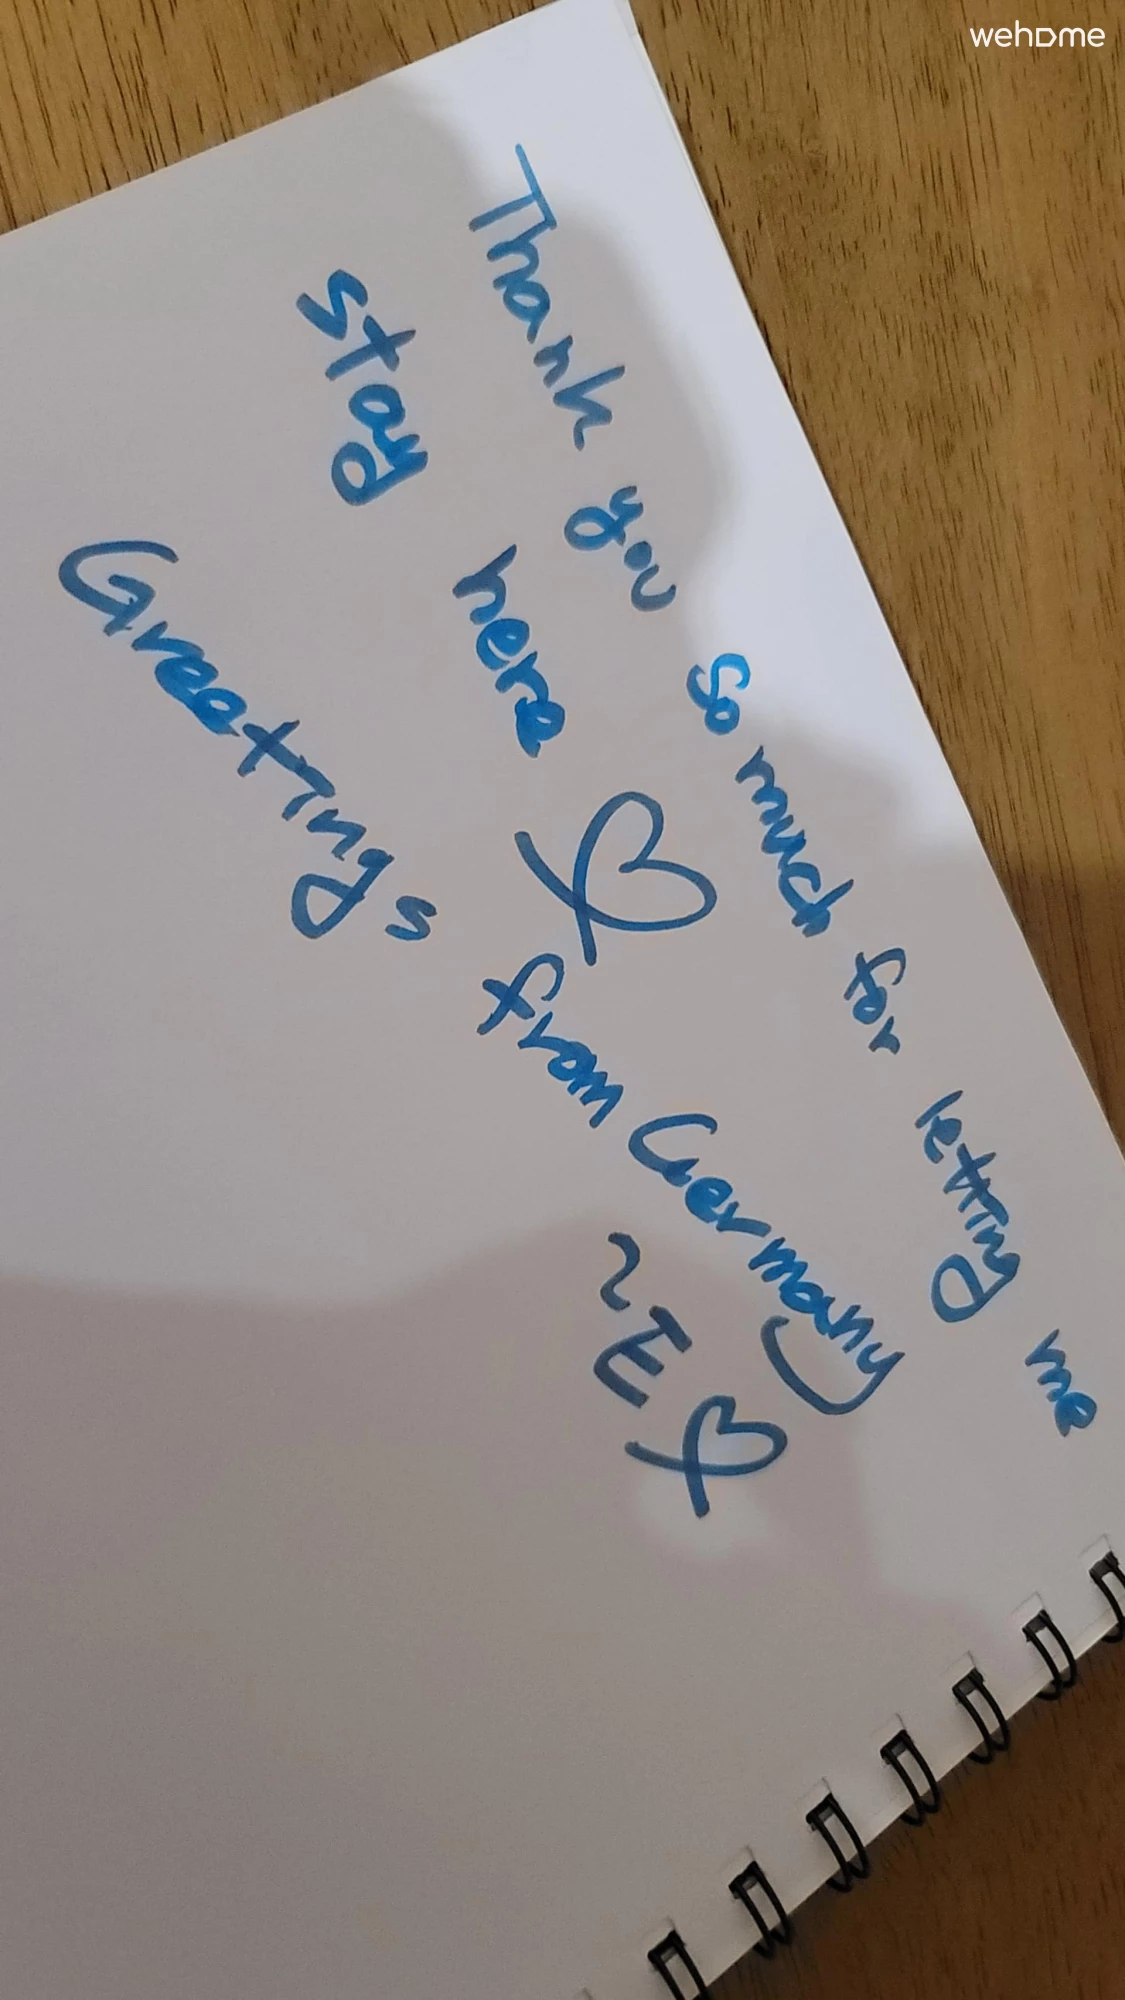 wehome
Thank you so much for letting me
stay here ♡
Greetings from Germany
~E ♡